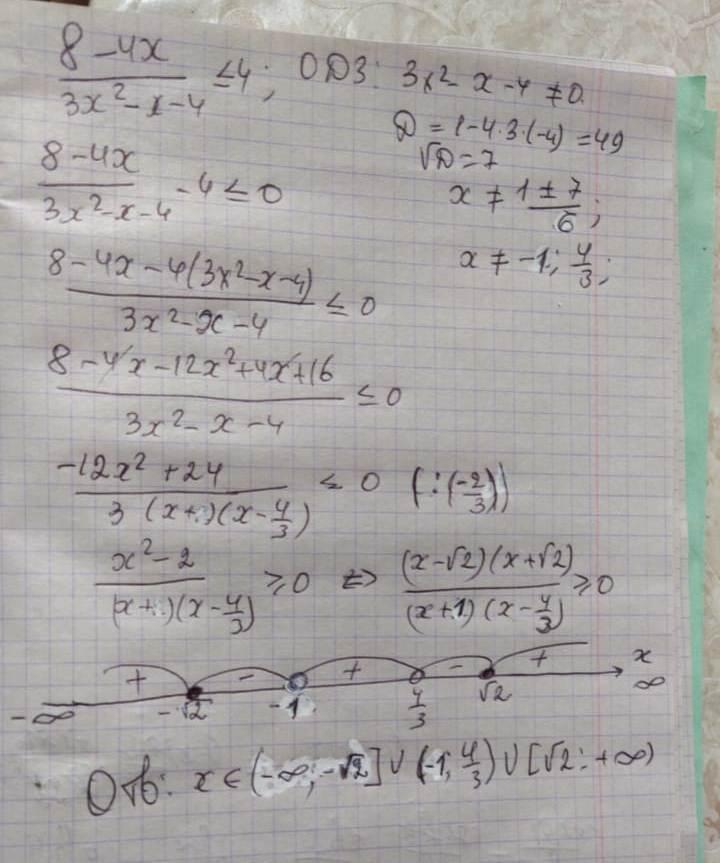 (8-4x)/(3x²-x-4) ≤4; ОДЗ: 3x²-x-4≠0.
D=1-4·3·(-4)=49
√D=7
(8-4x)/(3x²-x-4) -4≤0
x≠(1±7)/6;
x≠-1; 4/3;
(8-4x-4(3x²-x-4))/(3x²-x-4) ≤0
(8-4x-12x²+4x+16)/(3x²-x-4) ≤0
(-12x²+24)/(3(x+ )(x-4/3)) ≤ 0 (:(-2/3))
(x²-2)/((x+ )(x-4/3)) ≥0 <=> ((x-√2)(x+√2))/((x+1)(x-4/3)) ≥0
+ - + - + x
-∞ -√2 -1 4/3 √2 ∞
Отв: x∈(-∞;-√2]∪(-1;4/3)∪[√2;+∞)